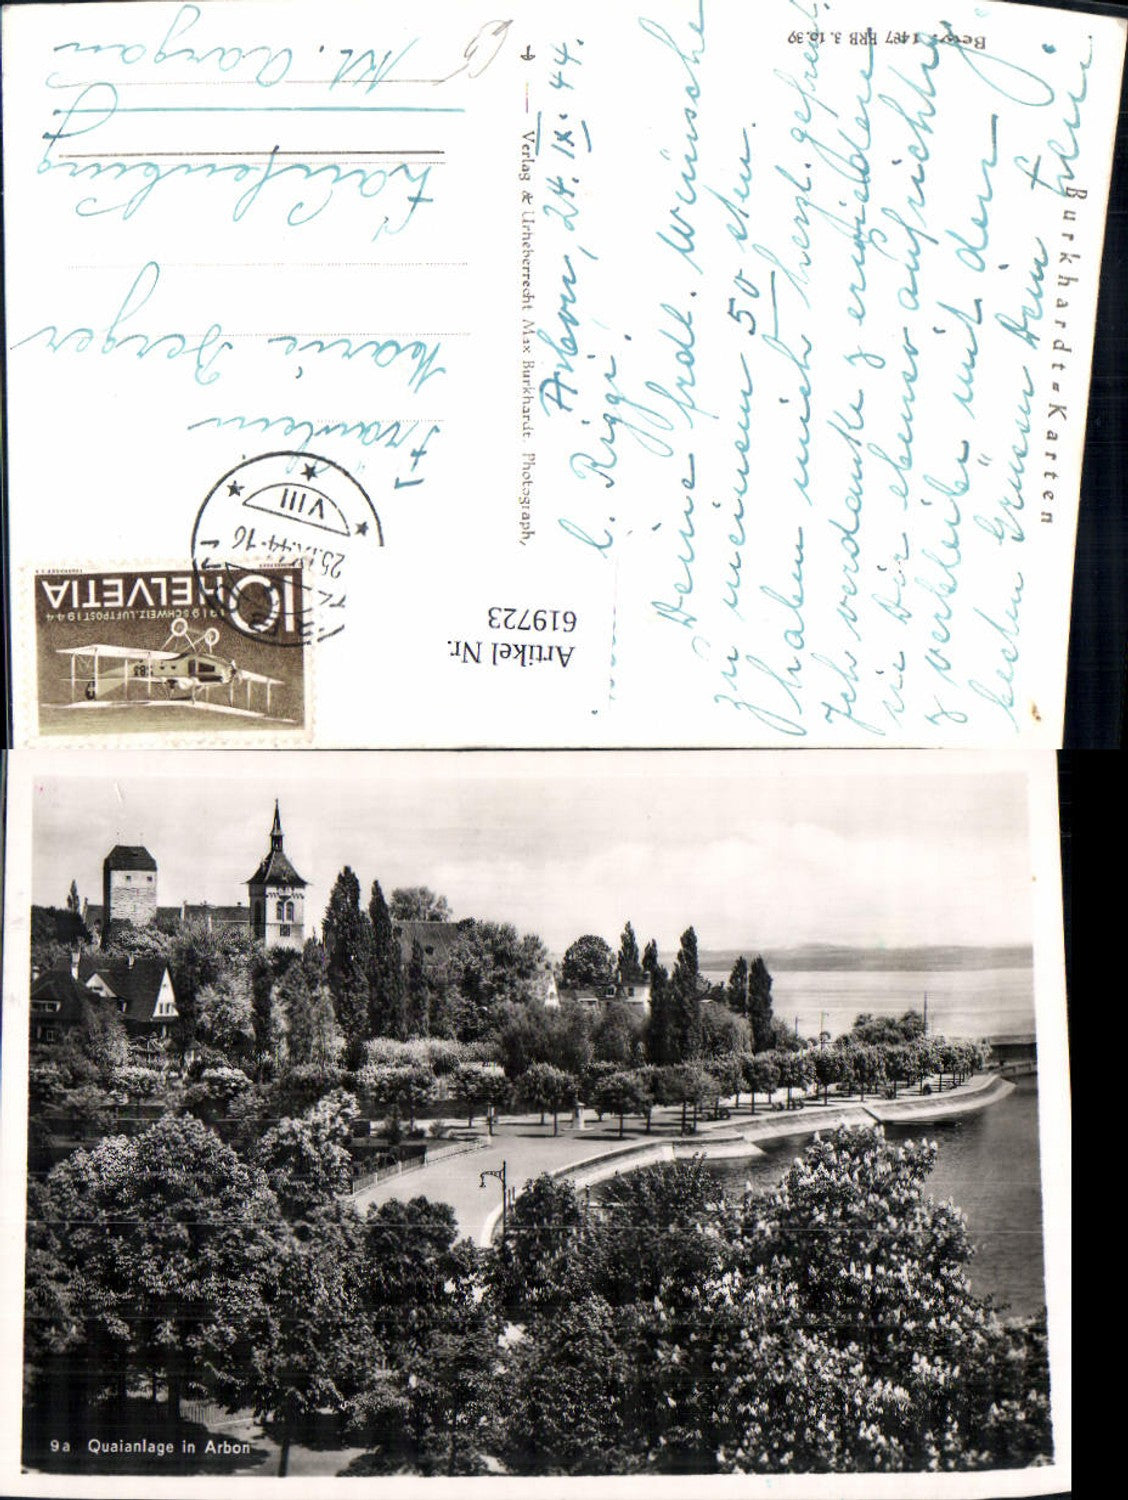 Arbon, 24. IX. 44.
l. Riggi!
Deine frdl. Wünsche
zu meinem 50 sten
haben mich herzl. gefreut.
Ich verdanke z erwiedere
sie Dir ebenso aufrichtig
z verbleibe mit den
besten Grüssen Deine
Burkhardt-Karten
Betr. 1487 BRB 3. 10. 39
Verlag & Urheberrecht Max Burkhardt, Photograph,
Artikel Nr.
619723
HELVETIA
10
1919 SCHWEIZ. LUFTPOST 1944
VIII
25.IX.44-16
Fräulein
Marie Berger
Laufenburg
Kt. Aargau
9a Quaianlage in Arbon